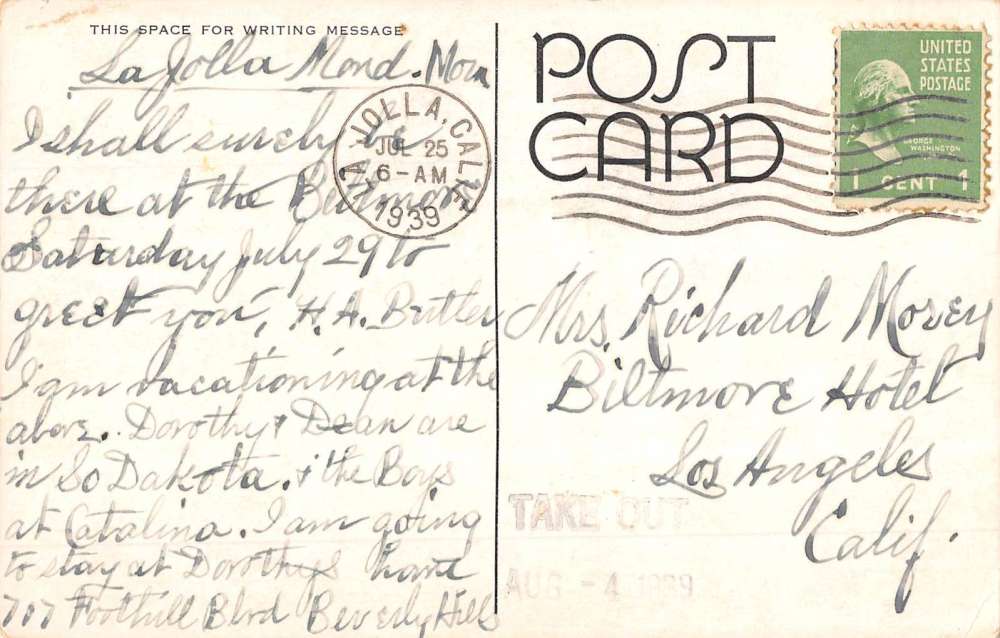 THIS SPACE FOR WRITING MESSAGE
La Jolla Mond. Morn
I shall surely be
there at the Biltmore
Saturday July 29 to
greet you, H. A. Butler
I am vacationing at the
above. Dorothy & Dean are
in So Dakota. & the Boys
at Catalina. I am going
to stay at Dorothys home
707 Foothill Blvd Beverly Hills
POST
CARD
LA JOLLA, CALIF.
JUL 25
6-AM
1939
UNITED
STATES
POSTAGE
GEORGE
WASHINGTON
1 CENT 1
Mrs. Richard Morey
Biltmore Hotel
Los Angeles
Calif.
TAKE OUT
AUG -4 1939